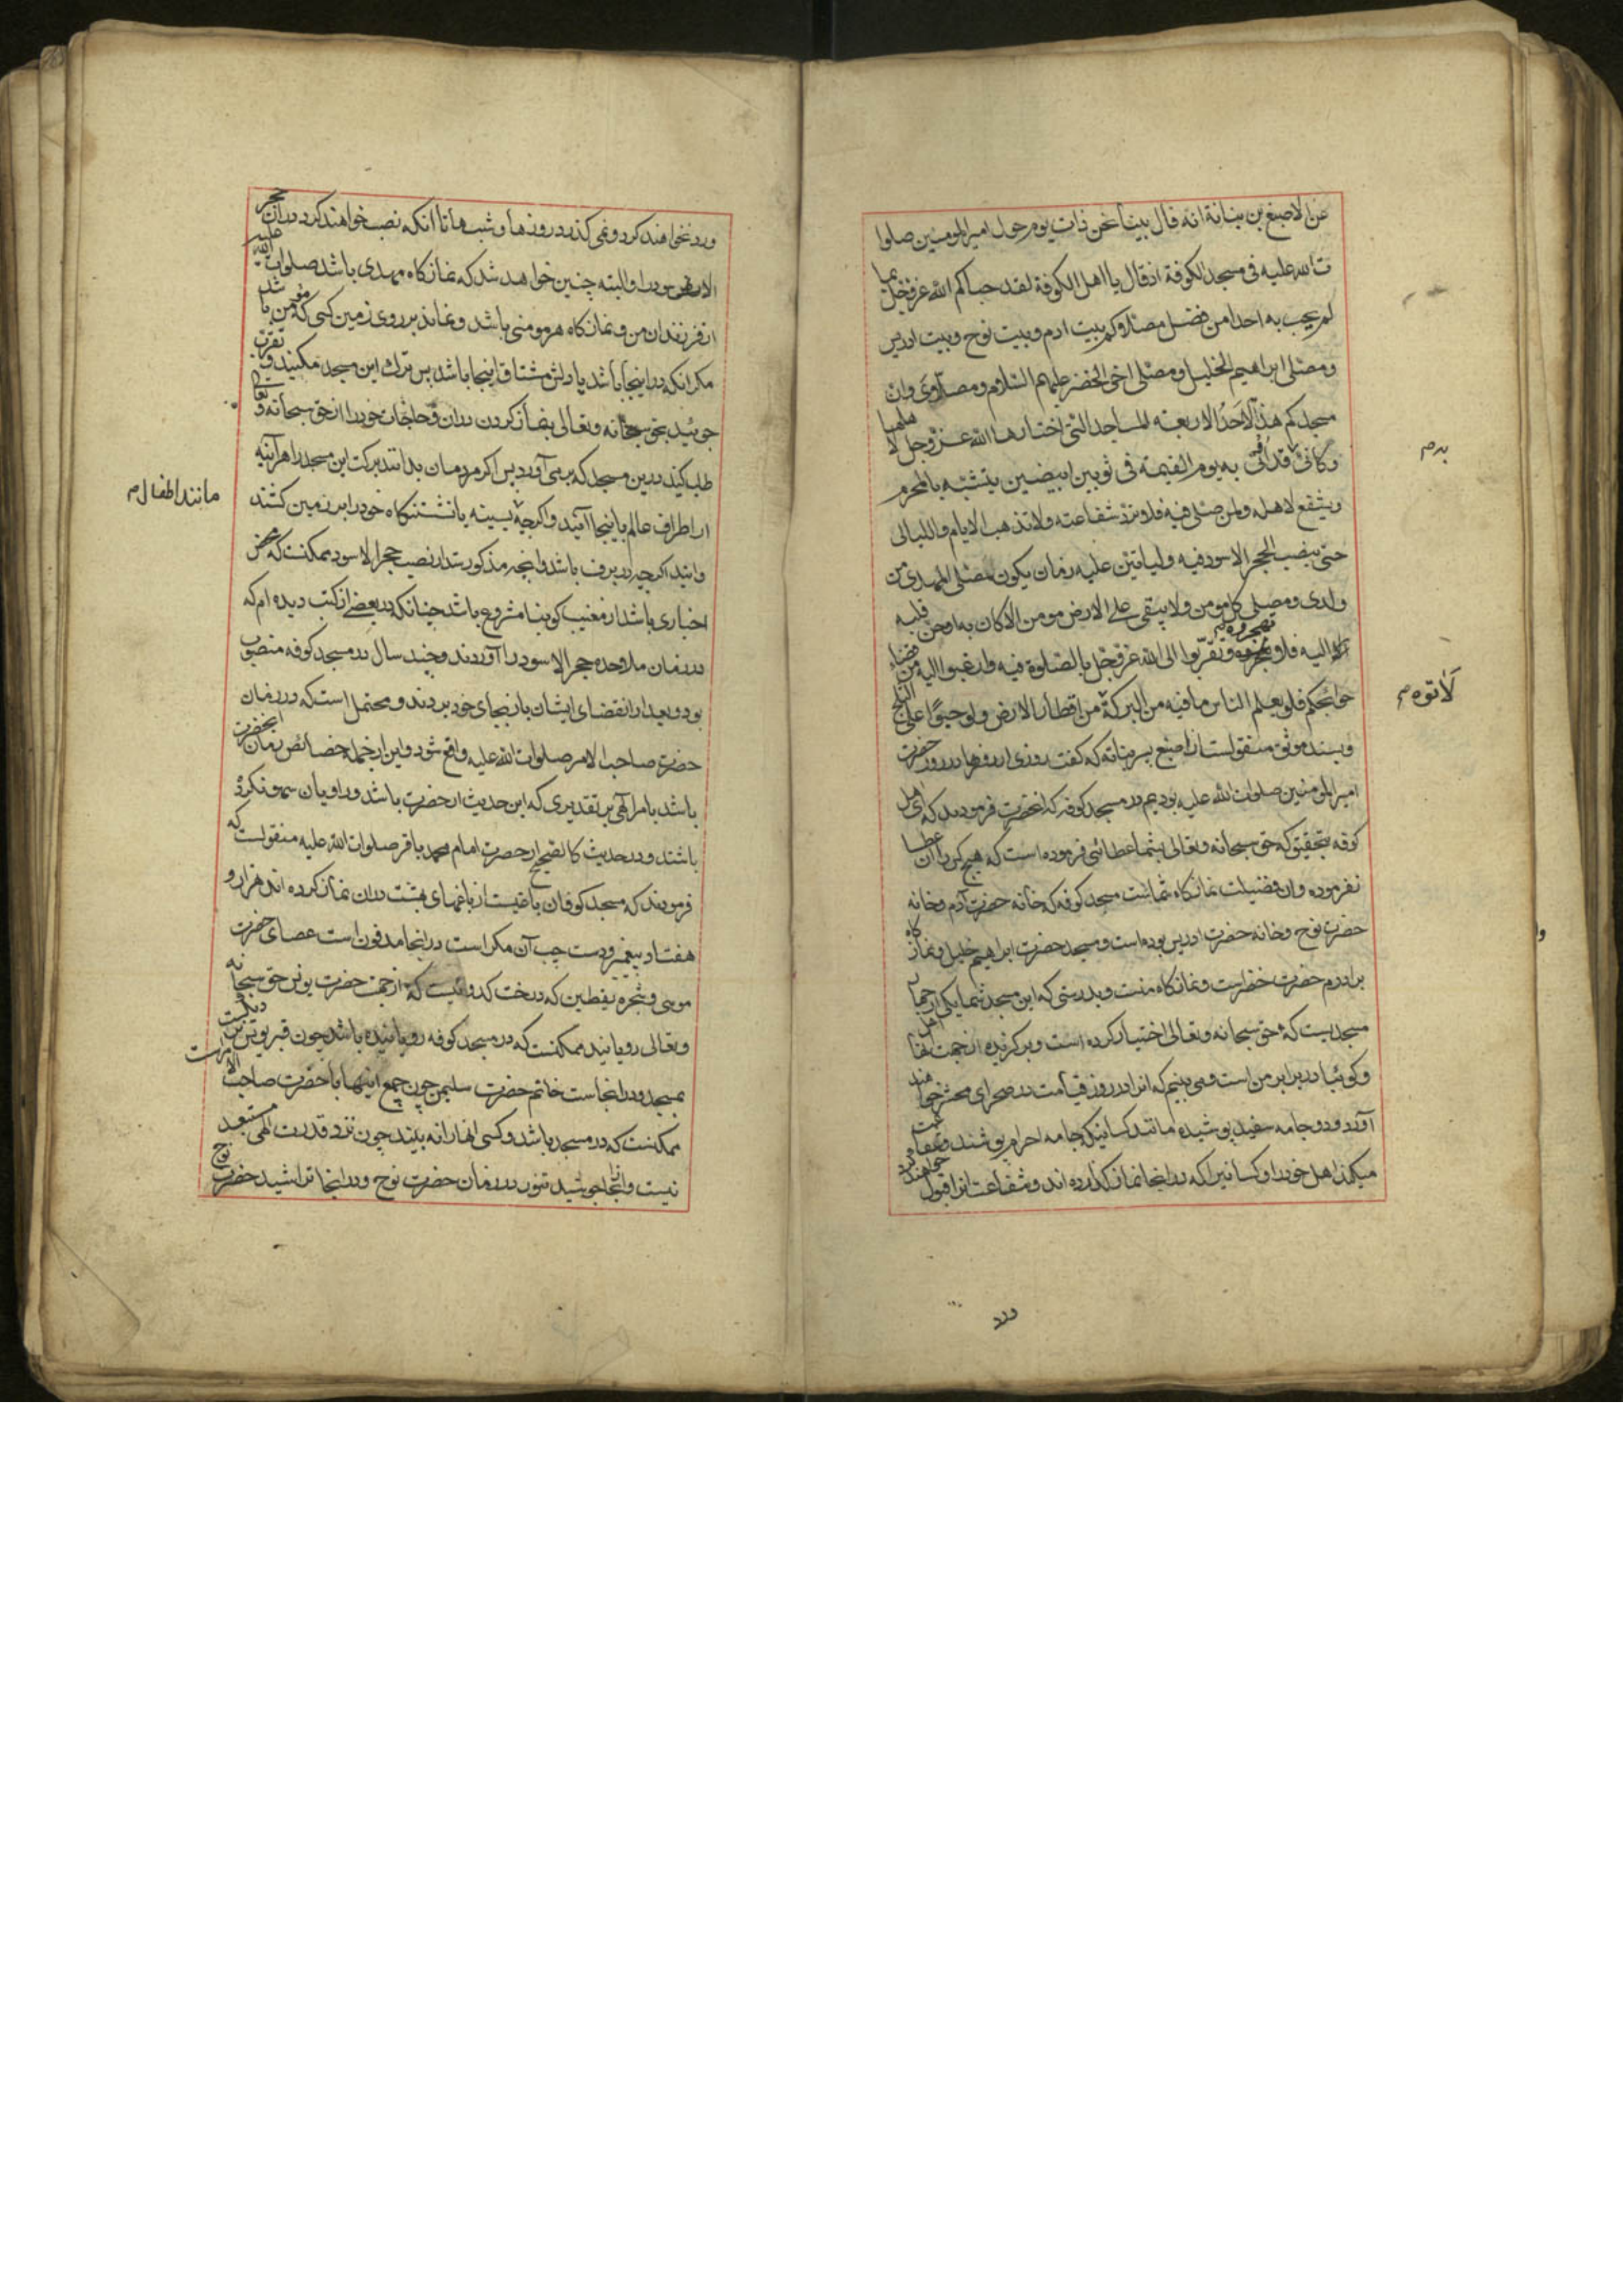 عن الاصبغ بن بناتة انه قال بينا نحن ذات يوم حول امير المومنين صلوا
ت الله عليه فی مسجد الكوفة اذ قال يا اهل الكوفة لقد حباكم الله عز وجل بما
لم يحب به احدا من فضل مصلاكم بيت ادم وبيت نوح وبيت ادريس
ومصلی ابراهيم الخليل ومصلی اخی الخضر عليهم السلام ومصلای وان
مسجدكم هذا لاحد الاربعة المساجد التی اختارها الله عز وجل لاهلها
وكانی قد اتی به يوم القيمة فی ثوبين ابيضين يتشبه بالمحرم
ويشفع لاهله ولمن صلی فيه فلا ترد شفاعته ولا تذهب الايام والليالی
حتی ينصب الحجر الاسود فيه وليأتين عليه زمان يكون مصلی المهدی من
ولدی ومصلی كل مومن ولا يبقی علی الارض مومن الا كان به او حن قلبه
اليه فلا تهجروه وتقربوا الی الله عز وجل بالصلوة فيه وارغبوا اليه من قضاء
حوائجكم فلو يعلم الناس ما فيه من البركة من اقطار الارض ولو حبوا علی الثلج
وبسند موثق منقولست از اصبغ پسر بناته كه گفت روزی از روزها در دور حضرت
امير المومنين صلوات الله عليه بوديم در مسجد كوفه كه انحضرت فرمودند كه ای اهل
كوفه بتحقيق كه حق سبحانه وتعالی بشما عطائی فرموده است كه هيچ كس را ان عطا
نفرموده وان فضيلت نمازكاه شماست مسجد كوفه كه خانه حضرت آدم وخانه
حضرت نوح وخانه حضرت ادريس بوده است ومسجد حضرت ابراهيم خليل ونمازكاه
برادرم حضرت خضر است ونمازكاه منست وبدرستی كه اين مسجد شما يكی از چهار
مسجديست كه حق سبحانه وتعالی اختيار كرده است وبركزيده از جهت اهل
وكوئيا در برابر من است ومی بينم كه انرا در روز قيامت در صحرای محشر خواهند
آورد ودو جامه سفيد پوشيده مانند كسانيكه جامه احرام پوشند وشفاعت
ميكند اهل خود را وكسانيرا كه در انجا نماز كذارده اند وشفاعت انرا قبول خواهند كرد
بدم
لاتوه م
ورد
ورد نخواهند كرد ونمی كذرد روزها وشبها تا انكه نصب خواهند كرد دران حجر
الاسود را والبته چنين خواهد شد كه نمازكاه مهدی باشد صلوات الله عليه
از فرزندان من ونمازكاه هر مومنی باشد ونماند بر روی زمين كسی كه مومن باشد
مكر انكه در اينجا باشد يا دلش مشتاق اينجا باشد پس ترك اين مسجد مكنيد وتقرب
جوئيد بحق سبحانه وتعالی بنماز كردن دران وحاجات خود را از حق سبحانه وتعالی
طلب كنيد درين مسجد كه بر می آورد پس اكر مردمان بدانند بركت اين مسجد را هر آئينه
از اطراف عالم باينجا آيند واكرچه بسينه يا نشستنكاه خود را بر زمين كشند
وايند اكرچه در برف باشد وانچه مذكور شد از نصب حجر الاسود ممكنست كه محض
اخباری باشد از مغيب كو بنا مشروع باشد چنانكه در بعضی از كتب ديده ام كه
در زمان ملاحده حجر الاسود را آوردند وچند سال در مسجد كوفه منصوب
بود وبعد از انقضای ايشان باز بجای خود بردند ومحتمل است كه در زمان
حضرت صاحب الامر صلوات الله عليه واقع شود واين از جمله خصائص زمان انحضرت
باشد بامر الهی بر تقديری كه اين حديث از حضرت باشد وراويان سهو نكرده
باشند ودر حديث كالصحيح از حضرت امام محمد باقر صلوات الله عليه منقولست كه
فرمودند كه مسجد كوفان باغيست از باغهای بهشت دران نماز كرده اند هزار و
هفتاد پيغمبر ودست چپ آن مكر است در انجا مدفون است عصای حضرت
موسی وشجره يقطين كه درخت كدوئيست كه از جهت حضرت يونس حق سبحانه
وتعالی رويانيد ممكنست كه در مسجد كوفه رويانيده باشد چون قبر يونس نزديكست
بمسجد ودر انجاست خاتم حضرت سليمن چون جميع اينها با حضرت صاحب الامر است
ممكنست كه در مسجد باشد وكسی انها را نه بيند چون نزد قدرت الهی مستبعد
نيست وانجا جوشيد تنور در زمان حضرت نوح ودر انجا تراشيد حضرت نوح
مانند اطفال م